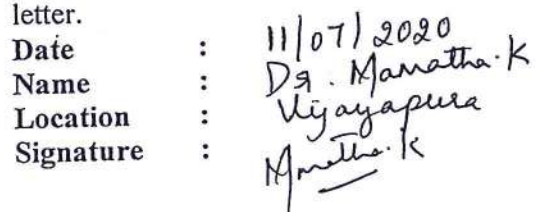 letter.
Date : 11/07/2020
Name : Dr. Mamatha.K
Location : Vijayapura
Signature : Mamatha.K